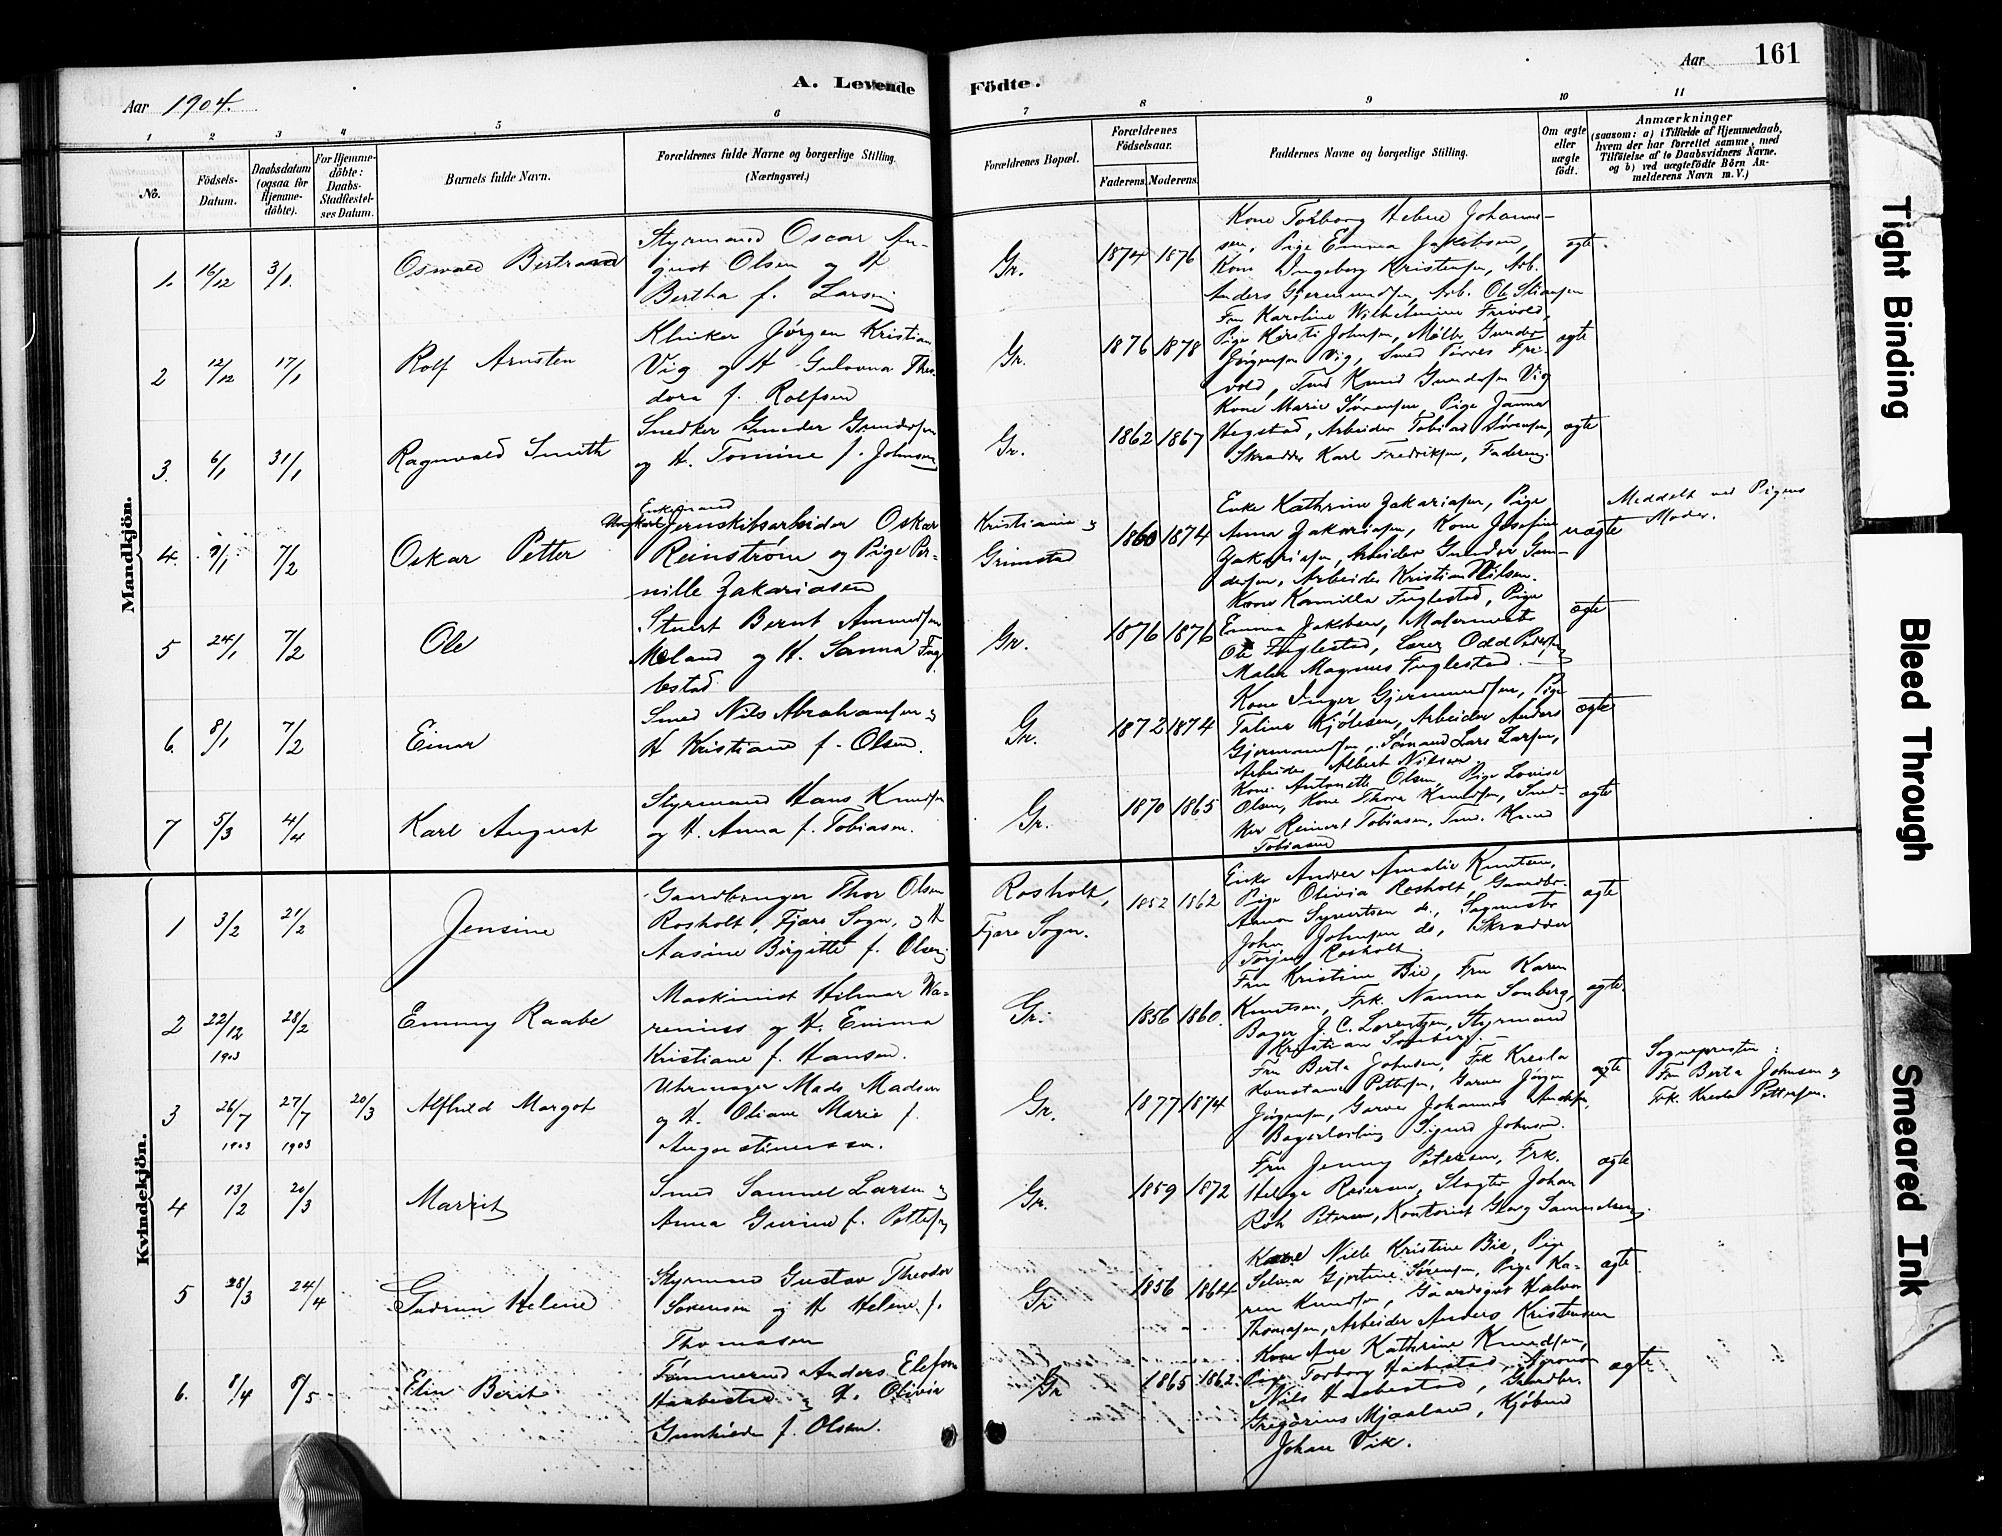 A. Levende Födte.
Aar 1904.
Aar 161
1 2 3 4 5 6 7 8 9 10 11
No.
Födsels-Datum.
Daabsdatum (ogsaa for Hjemme-döbte).
For Hjemme-döbte: Daabs-Stadfæstel-ses Datum.
Barnets fulde Navn.
Forældrenes fulde Navne og borgerlige Stilling.
(Næringsvei.)
Forældrenes Bopæl.
Forældrenes Födselsaar.
Faderens. Moderens.
Faddernes Navne og borgerlige Stilling.
Om ægte eller uægte födt.
Anmærkninger
(saasom: a) i Tilfælde af Hjemmedaab, hvem der har forrettet samme, med Tilföielse af to Daabsvidners Navne. og b) ved uægtefödte Börn An-melderens Navn m. V.)
Mandkjön.
1. 16/12 3/1. Oswald Bertrand
Styrmand Oscar Au-
gust Olsen og H
Bertha f. Larsen
Gr. 1874 1876
Kone Torborg Helene Johanne-
sen, Pige Emma Jakobsen,
Kone Ingeborg Kristensen, Arb.
Anders Gjermundsen, Arb. Ole Stiansen
ægte.
2 12/12 17/1 Rolf Arnsten
Klinker Jørgen Kristian
Vig og H Gulovna Theo-
dora f. Rolfsen
Gr. 1876 1878
Fru Karoline Wilhelmine Frivold,
Pige Kirsti Johnsen, Møller Gunder
Jørgensen Vig, Smed Tørres Fri-
vold, Tmd Knud Gundersen Vig
ægte
3. 6/1 31/1 Ragnvald Smith
Snedker Gunder Gundersen
og H. Tomine f. Johnsen
Gr. 1862 1867
Kone Marie Sørensen, Pige Janna
Hegstad, Arbeider Tobias Sørensen,
Skrædder Karl Fredriksen, Faderen.
ægte
4. 9/1 7/2 Oskar Petter
Enkemand
Jernskibsarbeider Oskar
Reinstrøm og Pige Per-
nille Zakariasen
Kristiania og
Grimstad
1860 1874
Enke Kathrine Zakariasen, Pige
Anna Zakariasen, Kone Josefine
Zakariasen, Arbeider Gunder Gun-
dersen, Arbeider Kristian Nilsen.
uægte
Meddelt ved Pigens
Moder.
5 24/1 7/2 Ole
Stuert Bernt Amundsen
Moland og H. Sanna Fug-
lestad
Gr. 1876 1876
Kone Kamilla Fuglestad, Pige
Emma Jakobsen, Malermester
Ole Fuglestad, Lærer Odd Pedersen,
Maler Magnus Fuglestad.
ægte
6. 8/1 7/2 Einar
Smed Nils Abrahamsen og
H Kristiane f. Olsen.
Gr. 1872 1874
Kone Inger Gjermundsen, Pige
Taline Kjölesen, Arbeider Anders
Gjermundsen, Sømand Lars Larsen,
Arbeider Albert Nilsen
ægte
7 5/3 4/4 Karl August
Styrmand Hans Knudsen
og H. Anna f. Tobiasen.
Gr. 1870 1865
Kone Antonette Olsen, Pige Lovise
Olsen, Kone Thora Knudsen, Sned-
ker Reinert Tobiasen, Tmd. Knud
Tobiasen
ægte
Kvindekjön.
1 3/2 21/2 Jensine
Gaardbruger Thor Olsen
Rosholt, Fjære Sogn, og H
Aasine Birgitte f. Olsen
Rosholt,
Fjære Sogn.
1852 1862
Enke Andrea Amalie Knutsen,
Pige Olivia Rosholt, Gaardbr.
Anton Syvertsen do., Sagmester
John Johnsen do, Skrædder
Torjus Rosholt.
ægte
2 22/12 1903 28/2 Emmy Raabe
Maskinist Hilmar Wa-
reniuss og H. Emma
Kristiane f. Hansen.
Gr. 1856 1860.
Fru Kristine Bie, Fru Karen
Knutsen, Frk. Nanna Sonberg,
Bager J. C. Lorentzen, Styrmand
Kristian Sonberg.
ægte.
3 26/7 1903 27/7 1903 20/3 Alfhild Margot
Uhrmager Mads Madsen
og H. Oliane Marie f.
Augustinussen.
Gr. 1877 1874
Fru Berta Johnsen, Frk Kresla
Konstanse Pettersen, Garver Jørgen
Jørgensen, Garver Johannes Andersen,
Bagerlærling Sigurd Johnsen.
ægte
Sognepresten:
Fru Berta Johnsen og
Frk. Kresla Pettersen.
4 13/2 20/3 Marit
Smed Samuel Larsen og
Anna Gurine f. Pettersen
Gr. 1859 1872
Fru Jenny Petersen, Frk.
Helga Reiersen, Slagter Johan
Röh Petersen, Kontorist Georg Samuelsen.
ægte
5 28/3 24/4 Gudrun Helene
Styrmand Gustav Theodor
Sörensen og H Helene f.
Thomassen
Gr 1856 1864
Kone Nille Kristine Bie, Pige
Selma Gjertine Sørensen, Pige Ka-
ren Knudsen, Gaardsgut Halvor
Thomassen, Arbeider Anders Kristensen
ægte
6. 8/4 8/5 Elin Berit
Tömmermd Anders Elefsen
Haabestad og H. Olivia
Gunhilde f. Olsen.
Gr 1865 1862.
Kone Ane Kathrine Knudsen,
Pige Torborg Haabestad, Agronom
Nils Haabestad, Gaardbr.
Gregorius Mjaaland, Kjøbmd
Johan Vik.
ægte.
Tight Binding
Bleed Through
Smeared Ink